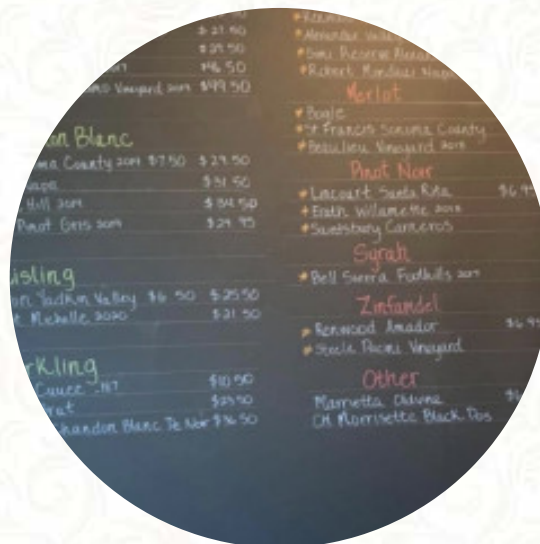 $27.50
$29.50
$46.50
Vineyard 2019 $49.50
on Blanc
County 2019 $7.50 $29.50
$31.50
Hill 2019 $34.50
Pinot Gris 2019 $29.95
isling
Yadkin Valley $6.50 $25.50
Michelle 2020 $21.50
rkling
$10.50
$29.50
handon Blanc De Noir $36.50
Alexander Valley
Robert Mondavi Napa
Merlot
Bogle
St Francis Sonoma County
Beaulieu Vineyard 2018
Pinot Noir
Lincourt Santa Rita $6.95
Erath Willamette 2018
Saintsbury Carneros
Syrah
Bell Sierra Foothills 2019
Zinfandel
Renwood Amador $6.95
Steele Pacini Vineyard
Other
Marietta
Morrisette Black Dog